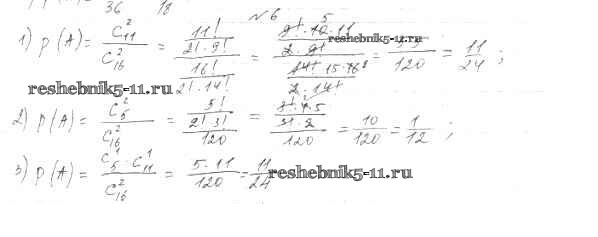 36 18
№6
1) p(A) = C²₁₁ / C²₁₆ = (11! / 2!·9!) / (16! / 2!·14!) = (9!·10·11 / 2·9!) / (14!·15·16 / 2·14!) = 55/120 = 11/24 ;
reshebnik5-11.ru
reshebnik5-11.ru
2) p(A) = C²₅ / C²₁₆ = (5! / 2!·3!) / 120 = (3!·4·5 / 3!·2) / 120 = 10/120 = 1/12 ;
3) p(A) = C¹₅ · C¹₁₁ / C²₁₆ = 5·11 / 120 = 11/24
reshebnik5-11.ru